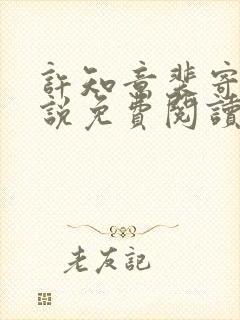 許知意裴寄
說免費閱讀
老友記